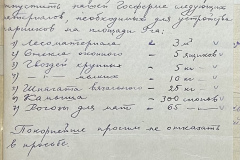 отпустить нашей Госферме следующих
материалов, необходимых для устройства
парников на площади 2га:
1) Лесоматериала — 3 м³ v
2) Стекла оконного — 5 ящиков v
3) Гвоздей крупных — 5 кг v
4) —"— — мелких — 10 кг — v
5) Шпагата вязального — 25 кг v
6) Камыша — 300 снопов v
7) Рогозы для мат — 65 — v
Покорнейше просим не отказать
в просьбе.